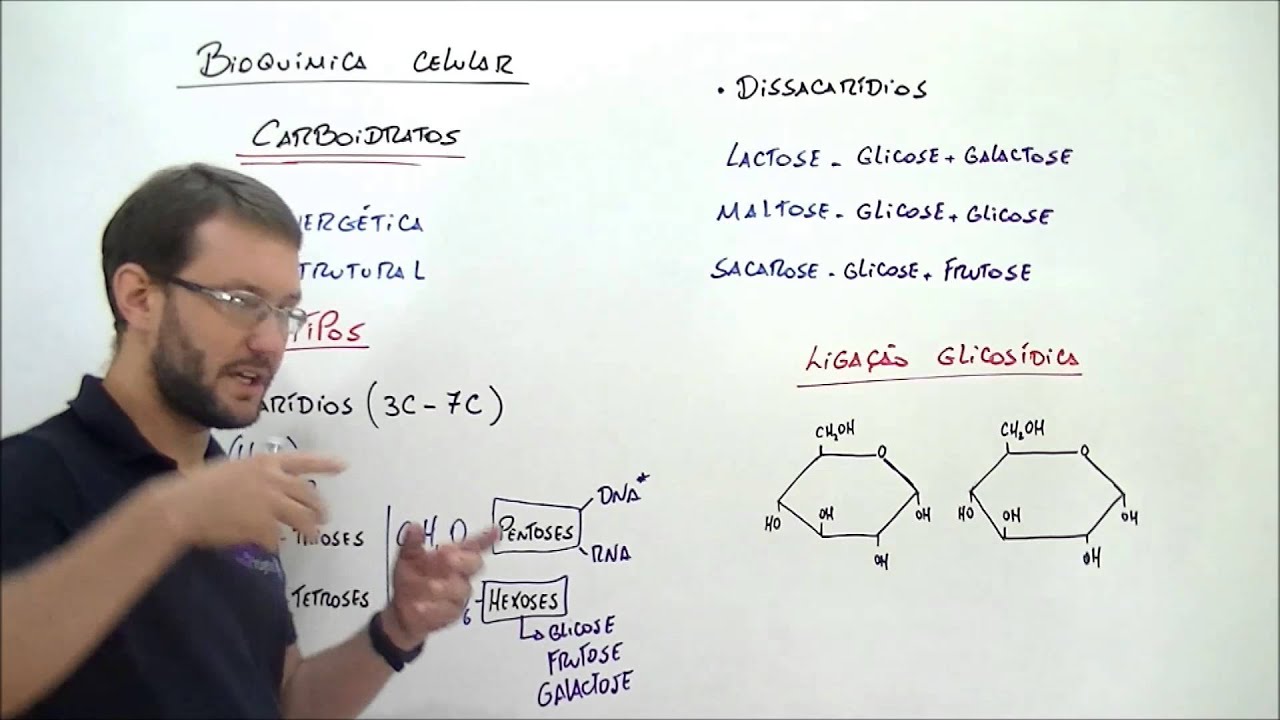 BIOQUÍMICA CELULAR
CARBOIDRATOS
NERGÉTICA
TRUTURAL
TIPOS
ARÍDIOS (3C-7C)
TRIOSES
TETROSES
PENTOSES
DNA*
RNA
6 - HEXOSES
GLICOSE
FRUTOSE
GALACTOSE
• DISSACARÍDIOS
LACTOSE - GLICOSE + GALACTOSE
MALTOSE - GLICOSE + GLICOSE
SACAROSE - GLICOSE + FRUTOSE
LIGAÇÃO GLICOSÍDICA
CH₂OH
O
HO
OH
OH
OH
CH₂OH
O
HO
OH
OH
OH